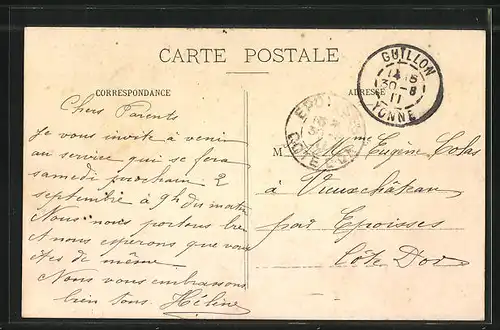 CARTE POSTALE
CORRESPONDANCE
Chers Parents
Je vous invite à venir
au service qui se fera
samedi prochain 2
septembre à 9h du matin
Nous nous portons bien
et nous esperons que vous
êtes de même.
Nous vous embrassons
bien tous. Hélène
ADRESSE
M me Eugène Colas
à Vieuxchâteau
par Epoisses
Côte D'or
GUILLON
30 - 8
11
YONNE